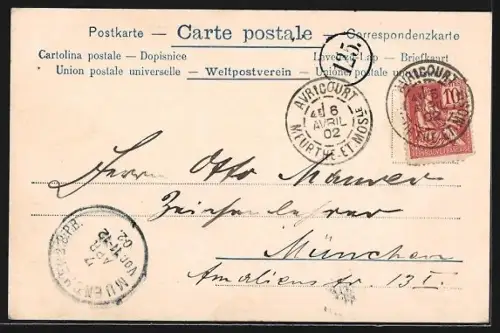 Postkarte – Carte postale – Correspondenzkarte
Cartolina postale – Dopisnice Levelező-Lap – Briefkaart
Union postale universelle – Weltpostverein – Unione postale
125.
AVRICOURT
6
AVRIL
02
MEURTHE-ET-MOSLE
AVRICOURT
02
ET-MOSLE
10
Herrn Otto Maurer
Zeichenlehrer
München
Amalienstr. 13 I.
MUENCHEN
7
APR
Vor. 11-12
02.